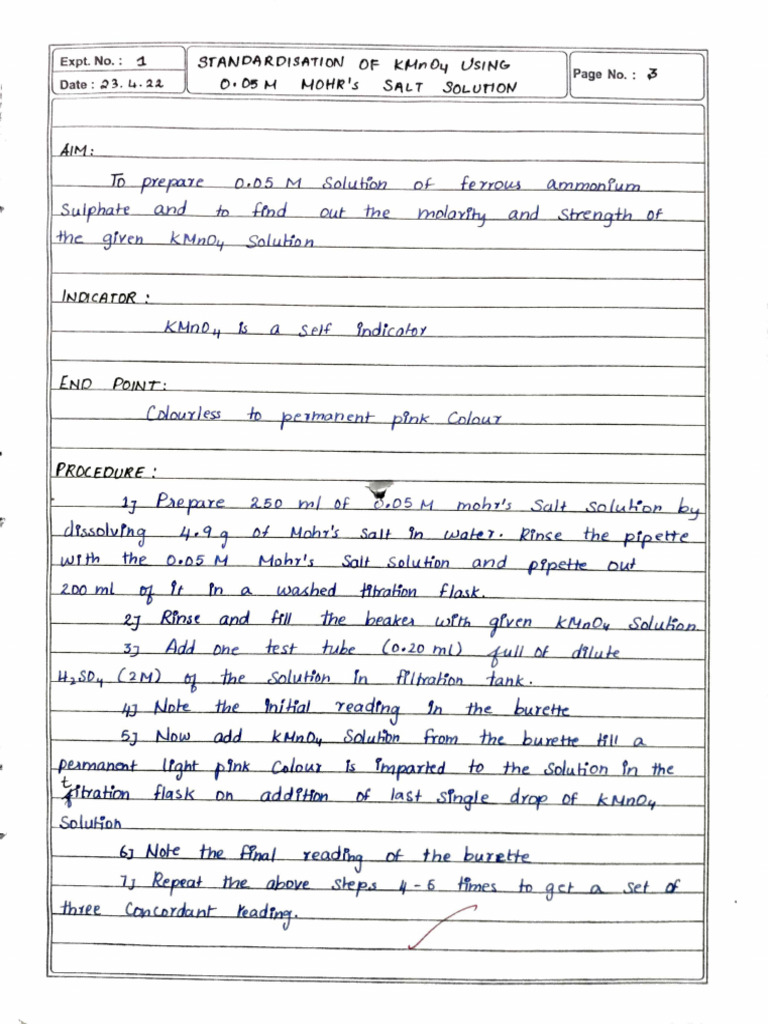 Expt. No. : 1
Date : 23.4.22
STANDARDISATION OF KMnO4 USING
0.05 M MOHR's SALT SOLUTION
Page No. : 3
AIM:
To prepare 0.05 M Solution of ferrous ammonium
Sulphate and to find out the molarity and strength of
the given KMnO4 Solution
INDICATOR :
KMnO4 is a self indicator
END POINT:
Colourless to permanent pink Colour
PROCEDURE :
1] Prepare 250 ml of 0.05 M mohr's Salt solution by
dissolving 4.9 g of Mohr's salt in water. Rinse the pipette
with the 0.05 M Mohr's Salt Solution and pipette out
200 ml of it in a washed titration flask.
2] Rinse and fill the beaker with given KMnO4 Solution
3] Add one test tube (0.20 ml) full of dilute
H2SO4 (2M) of the solution in filtration tank.
4] Note the initial reading in the burette
5] Now add KMnO4 Solution from the burette till a
permanent light pink Colour is imparted to the solution in the
titration flask on addition of last single drop of KMnO4
Solution
6] Note the final reading of the burette
7] Repeat the above steps 4-6 times to get a set of
three Concordant reading.